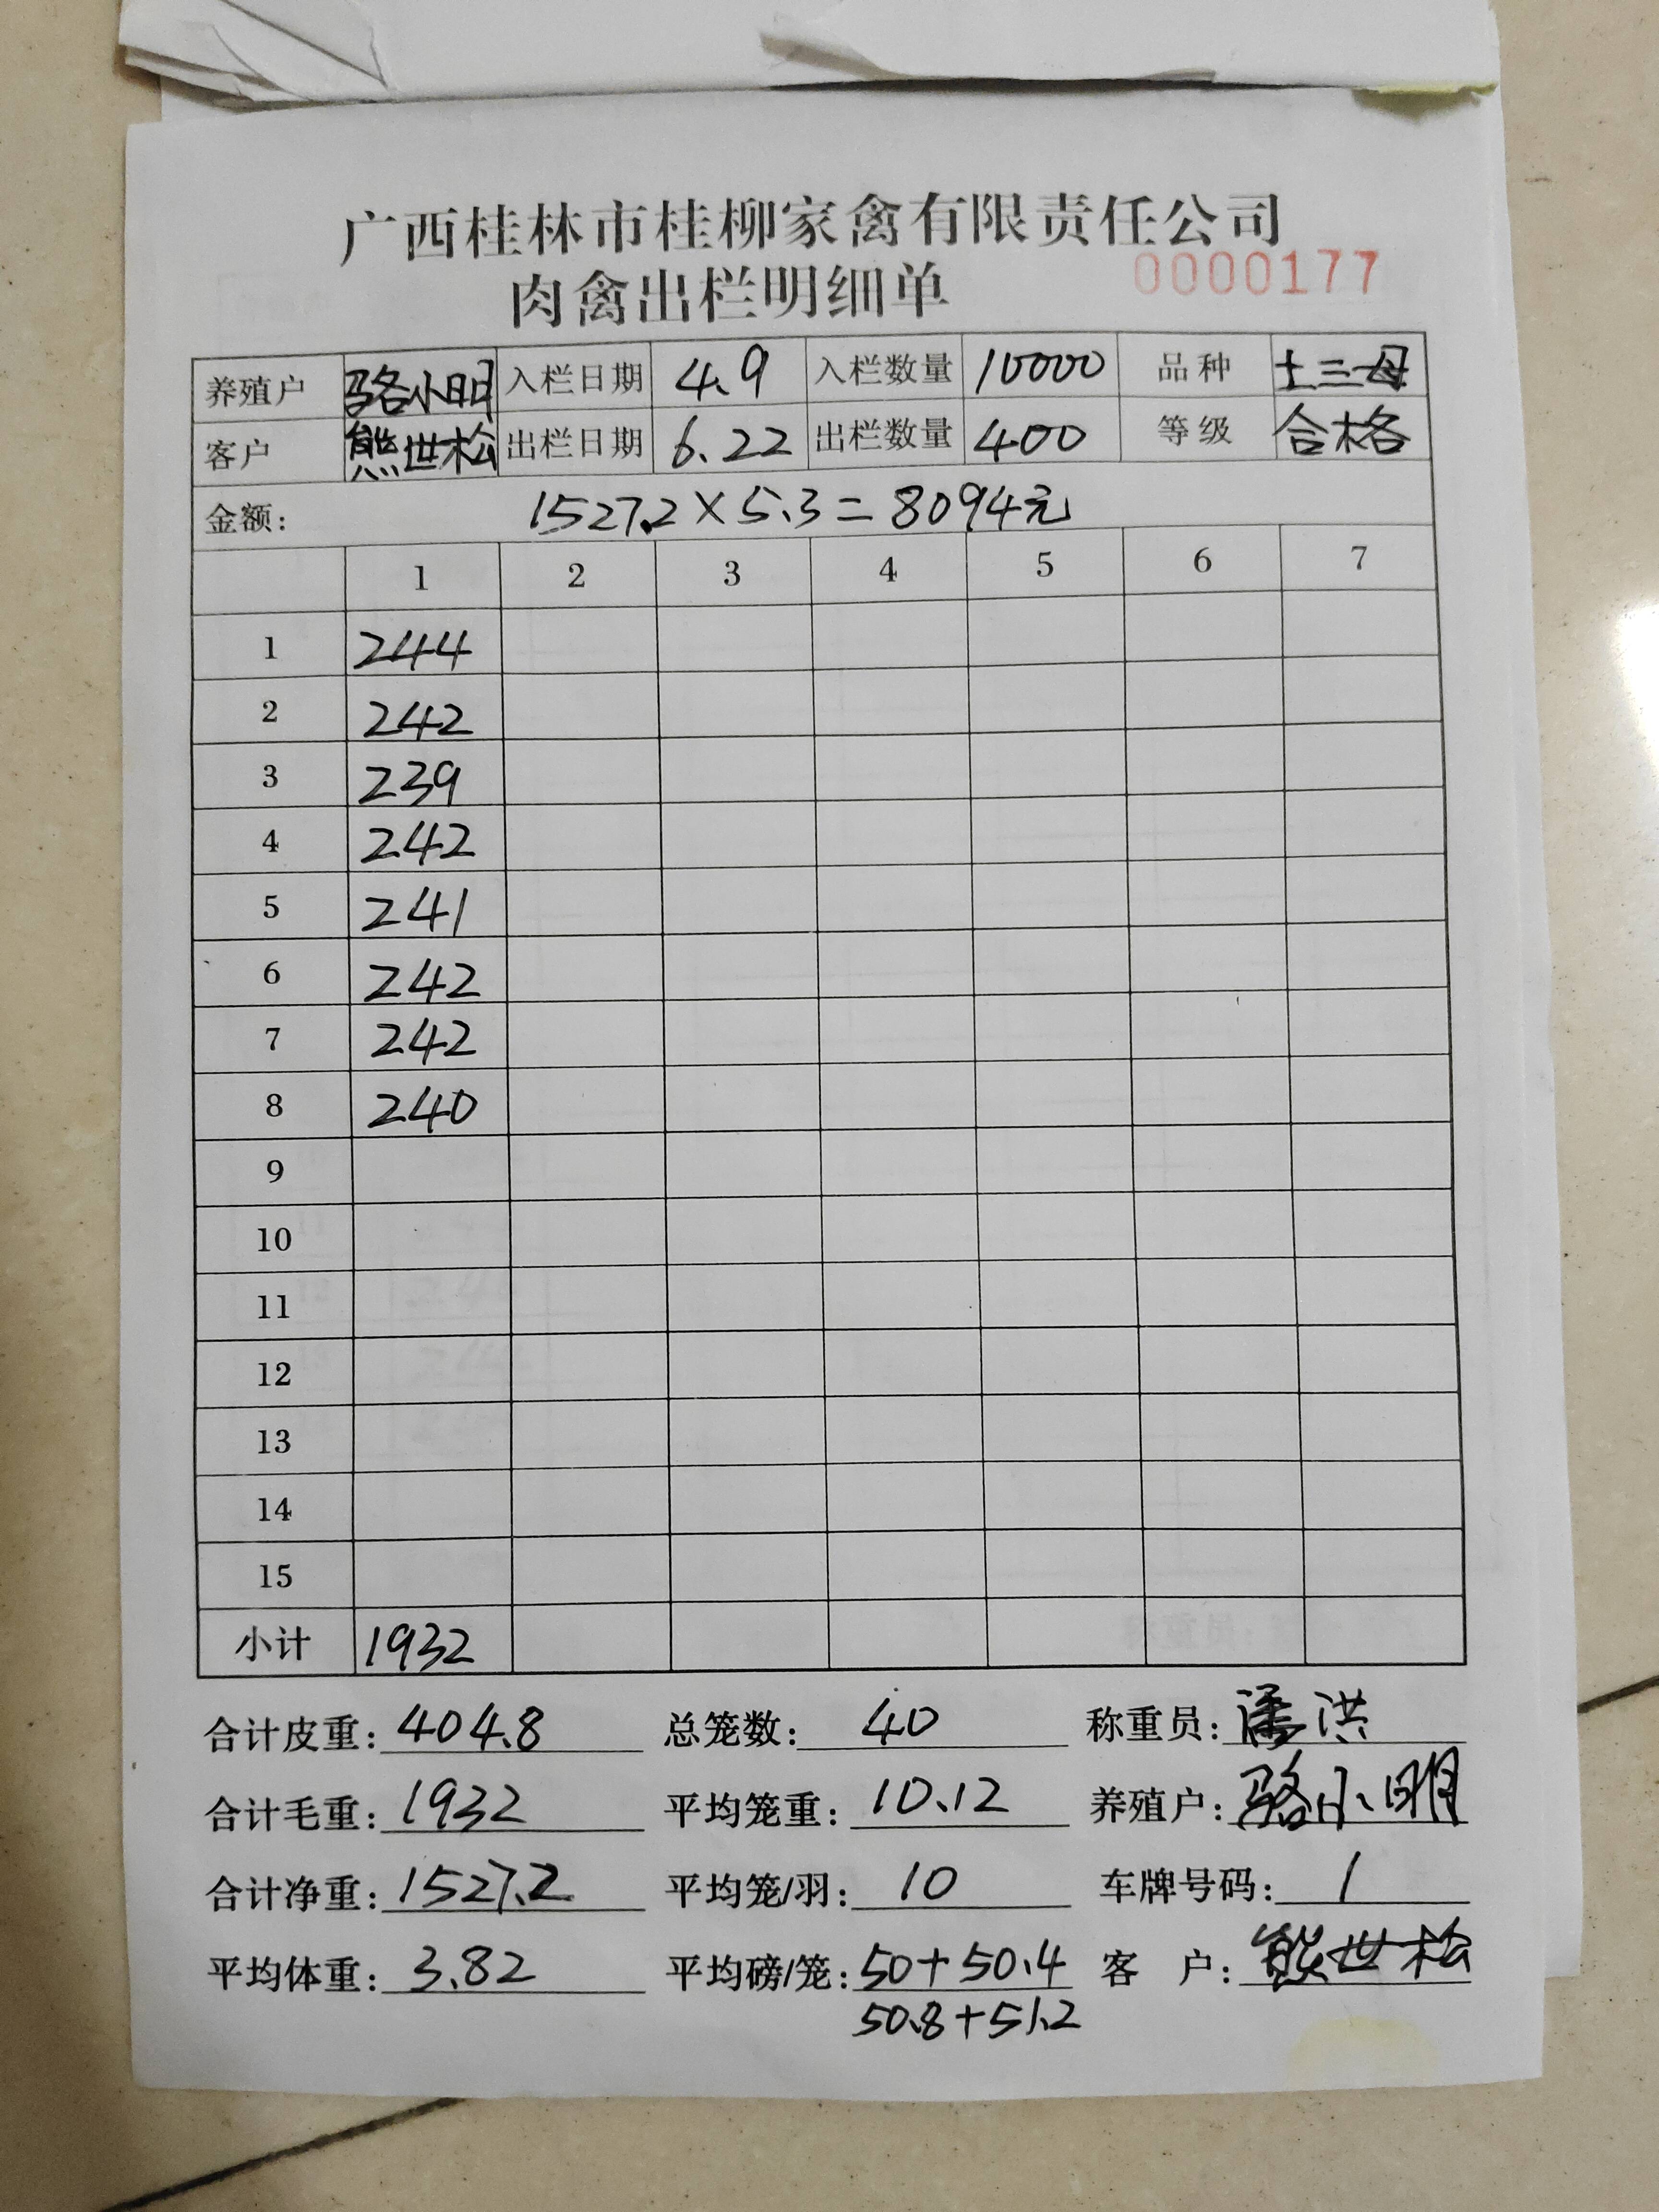 广西桂林市桂柳家禽有限责任公司
肉禽出栏明细单 0000177
养殖户 骆小明 入栏日期 4.9 入栏数量 10000 品种 土三母
客户 熊世松 出栏日期 6.22 出栏数量 400 等级 合格
金额: 1527.2×5.3=8094元
1 2 3 4 5 6 7
1 244
2 242
3 239
4 242
5 241
6 242
7 242
8 240
9
10
11
12
13
14
15
小计 1932
合计皮重: 404.8 总笼数: 40 称重员: 潘洪
合计毛重: 1932 平均笼重: 10.12 养殖户: 骆小明
合计净重: 1527.2 平均笼/羽: 10 车牌号码: 1
平均体重: 3.82 平均磅/笼: 50+50.4 客 户: 熊世松
50.8+51.2